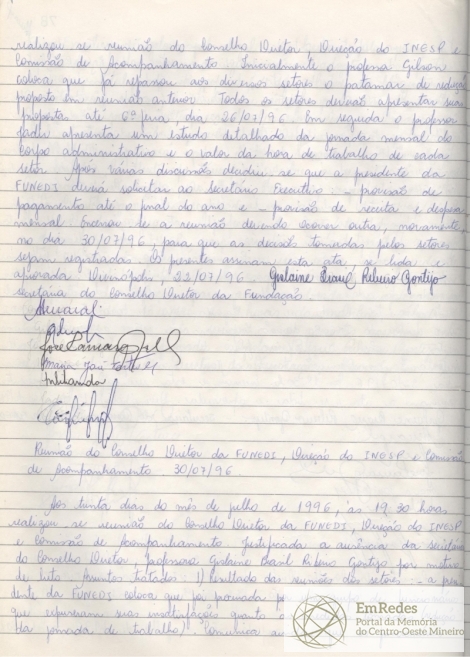 realizou se reunião do Conselho Diretor, Direção do INESP e
Comissão de Acompanhamento. Inicialmente o professor Gilson
coloca que já repassou aos diversos setores o patamar de redução
proposto em reunião anterior. Todos os setores deverão apresentar suas
propostas até 6ª feira, dia 26/07/96. Em seguida o professor
apresenta um estudo detalhado da jornada mensal do
corpo administrativo e o valor da hora de trabalho de cada
setor. Após várias discussões decidiu-se que a presidente da
FUNEDI deverá solicitar ao Secretário Executivo: - previsão de
pagamento até o final do ano e - previsão de receita e despesa
mensal. Encerrou-se a reunião devendo ocorrer outra, novamente
no dia 30/07/96, para que as decisões tomadas pelos setores
sejam registradas. Os presentes assinam esta ata, se lida e
aprovada. Divinópolis, 22/07/96. Gislaine Ribeiro Gontijo
secretária do Conselho Diretor da Fundação
Maria
Reunião do Conselho Diretor da FUNEDI, Direção do INESP e Comissão
de Acompanhamento. 30/07/96
Aos trinta dias do mês de julho de 1996, às 19,30 horas
realizou se reunião do Conselho Diretor da FUNEDI, Direção do INESP
e Comissão de Acompanhamento. Justificada a ausência da secretária
do Conselho Diretor, professora Gislaine Ribeiro Gontijo por motivo
de luto. Assuntos tratados: 1) Resultado das reuniões dos setores: - a presi
dente da FUNEDI coloca que foi procurada
que suas insatisfações quanto
da jornada de trabalho). Comunica
EmRedes
Portal da Memória
do Centro-Oeste Mineiro